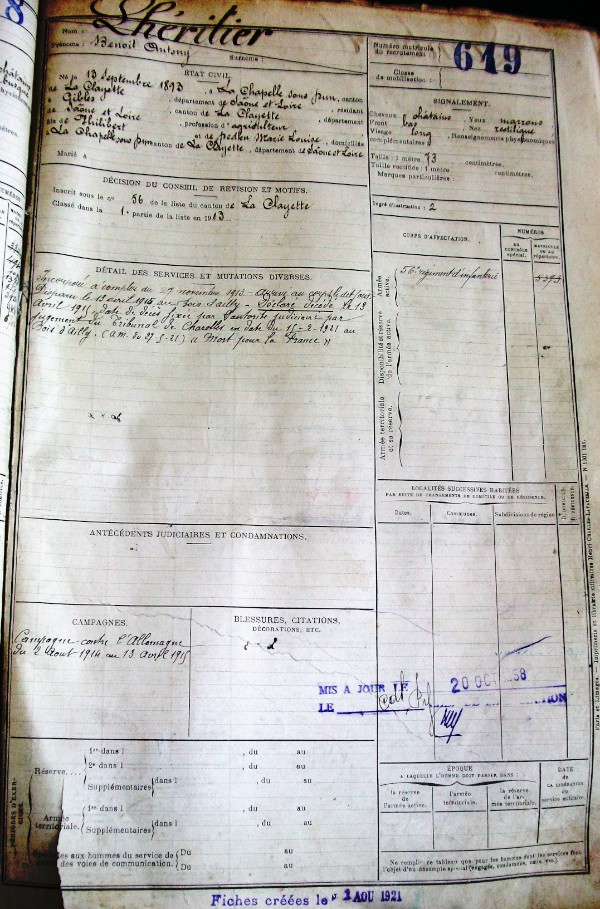 8
Nom : Lhéritier
Prénoms : Benoit Antony
Surnoms :
Numéro matricule du recrutement : 619
Classe de mobilisation :
ÉTAT CIVIL.
Né le 13 Septembre 1893, à La Chapelle sous Dun, canton
de La Clayette, département de Saône et Loire, résidant
à Gibles, canton de La Clayette, département
de Saône et Loire, profession d'agriculteur
fils de Philibert et de Marie Louise, domiciliés
à La Chapelle sous Dun canton de La Clayette, département de Saône et Loire
Marié à
SIGNALEMENT.
Cheveux châtains Yeux marrons
Front bas Nez rectiligne
Visage long Renseignements physionomiques
complémentaires :
Taille : 1 mètre 73 centimètres.
Taille rectifiée : 1 mètre centimètres.
Marques particulières :
Degré d'instruction : 2
DÉCISION DU CONSEIL DE RÉVISION ET MOTIFS.
Inscrit sous le n° 56 de la liste du canton de La Clayette
Classé dans la 1e partie de la liste en 1913
CORPS D'AFFECTATION.
NUMÉROS
AU CONTRÔLE spécial.
MATRICULE OU AU répertoire.
Armée active.
56e régiment d'infanterie
Disponibilité et réserve de l'armée active.
Armée territoriale et sa réserve.
DÉTAIL DES SERVICES ET MUTATIONS DIVERSES.
Incorporé à compter du 27 novembre 1913 - Arrivé au corps le dit jour
Disparu le 13 avril 1915 au Bois d'Ailly - Déclaré décédé le 13
Avril 1915, date de décès fixée par l'autorité judiciaire par
jugement du Tribunal de Charolles en date du 15-2-1921 au
Bois d'Ailly. (a.m. du 27-5-21) "Mort pour la France"
LOCALITÉS SUCCESSIVES HABITÉES
PAR SUITE DE CHANGEMENTS DE DOMICILE OU DE RÉSIDENCE.
Dates.
Communes.
Subdivisions de région.
ANTÉCÉDENTS JUDICIAIRES ET CONDAMNATIONS.
CAMPAGNES.
Campagne contre l'Allemagne
du 2 Aout 1914 au 13 Avril 1915
BLESSURES, CITATIONS,
DÉCORATIONS, ETC.
MIS A JOUR LE
20 OCT
LE
PÉRIODES D'EXERCICES.
Réserve....
1re dans l , du au
2e dans l , du au
Supplémentaires dans l , du au
Armée territoriale.
1re dans l , du au
Supplémentaires dans l , du au
aux hommes du service de
des voies de communication.
Du au
Du au
ÉPOQUE
A LAQUELLE L'HOMME DOIT PASSER DANS :
la réserve de l'armée active.
l'armée territoriale.
la réserve de l'armée territoriale.
DATE de la LIBÉRATION du service militaire.
Ne remplir ce tableau que pour les hommes dont les services font
l'objet d'un décompte spécial (engagés, condamnés, omis, etc.)
Fiches créées le 1 AOU 1921